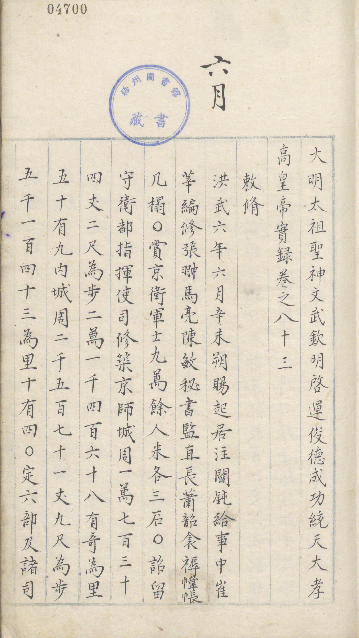 04700
六月
州圖書館
藏書
大明太祖聖神文武欽明啓運俊德成功統天大孝
高皇帝實錄卷之八十三
敕脩
洪武六年六月辛未朔賜起居注關毓給事中崔
莘編修張翀馬亮陳敏秘書監直長蕭韶衾褥幃帳
几榻○賞京衛軍士九萬餘人米各三石○詔留
守衛都指揮使司修築京師城周一萬七百三十
四丈二尺為步二萬一千四百六十八有奇為里
五十有九內城周二千五百七十一丈九尺為步
五千一百四十三為里十有四○定六部及諸司